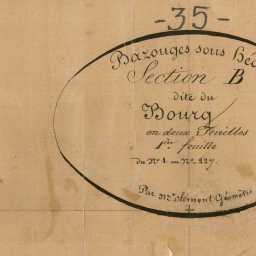 -35-
Bazouges sous Hé
Section B
dite du
Bourg
en deux Feuilles
1re feuille
du N° 1 au N° 227.
Par Mr Clément Géomètre